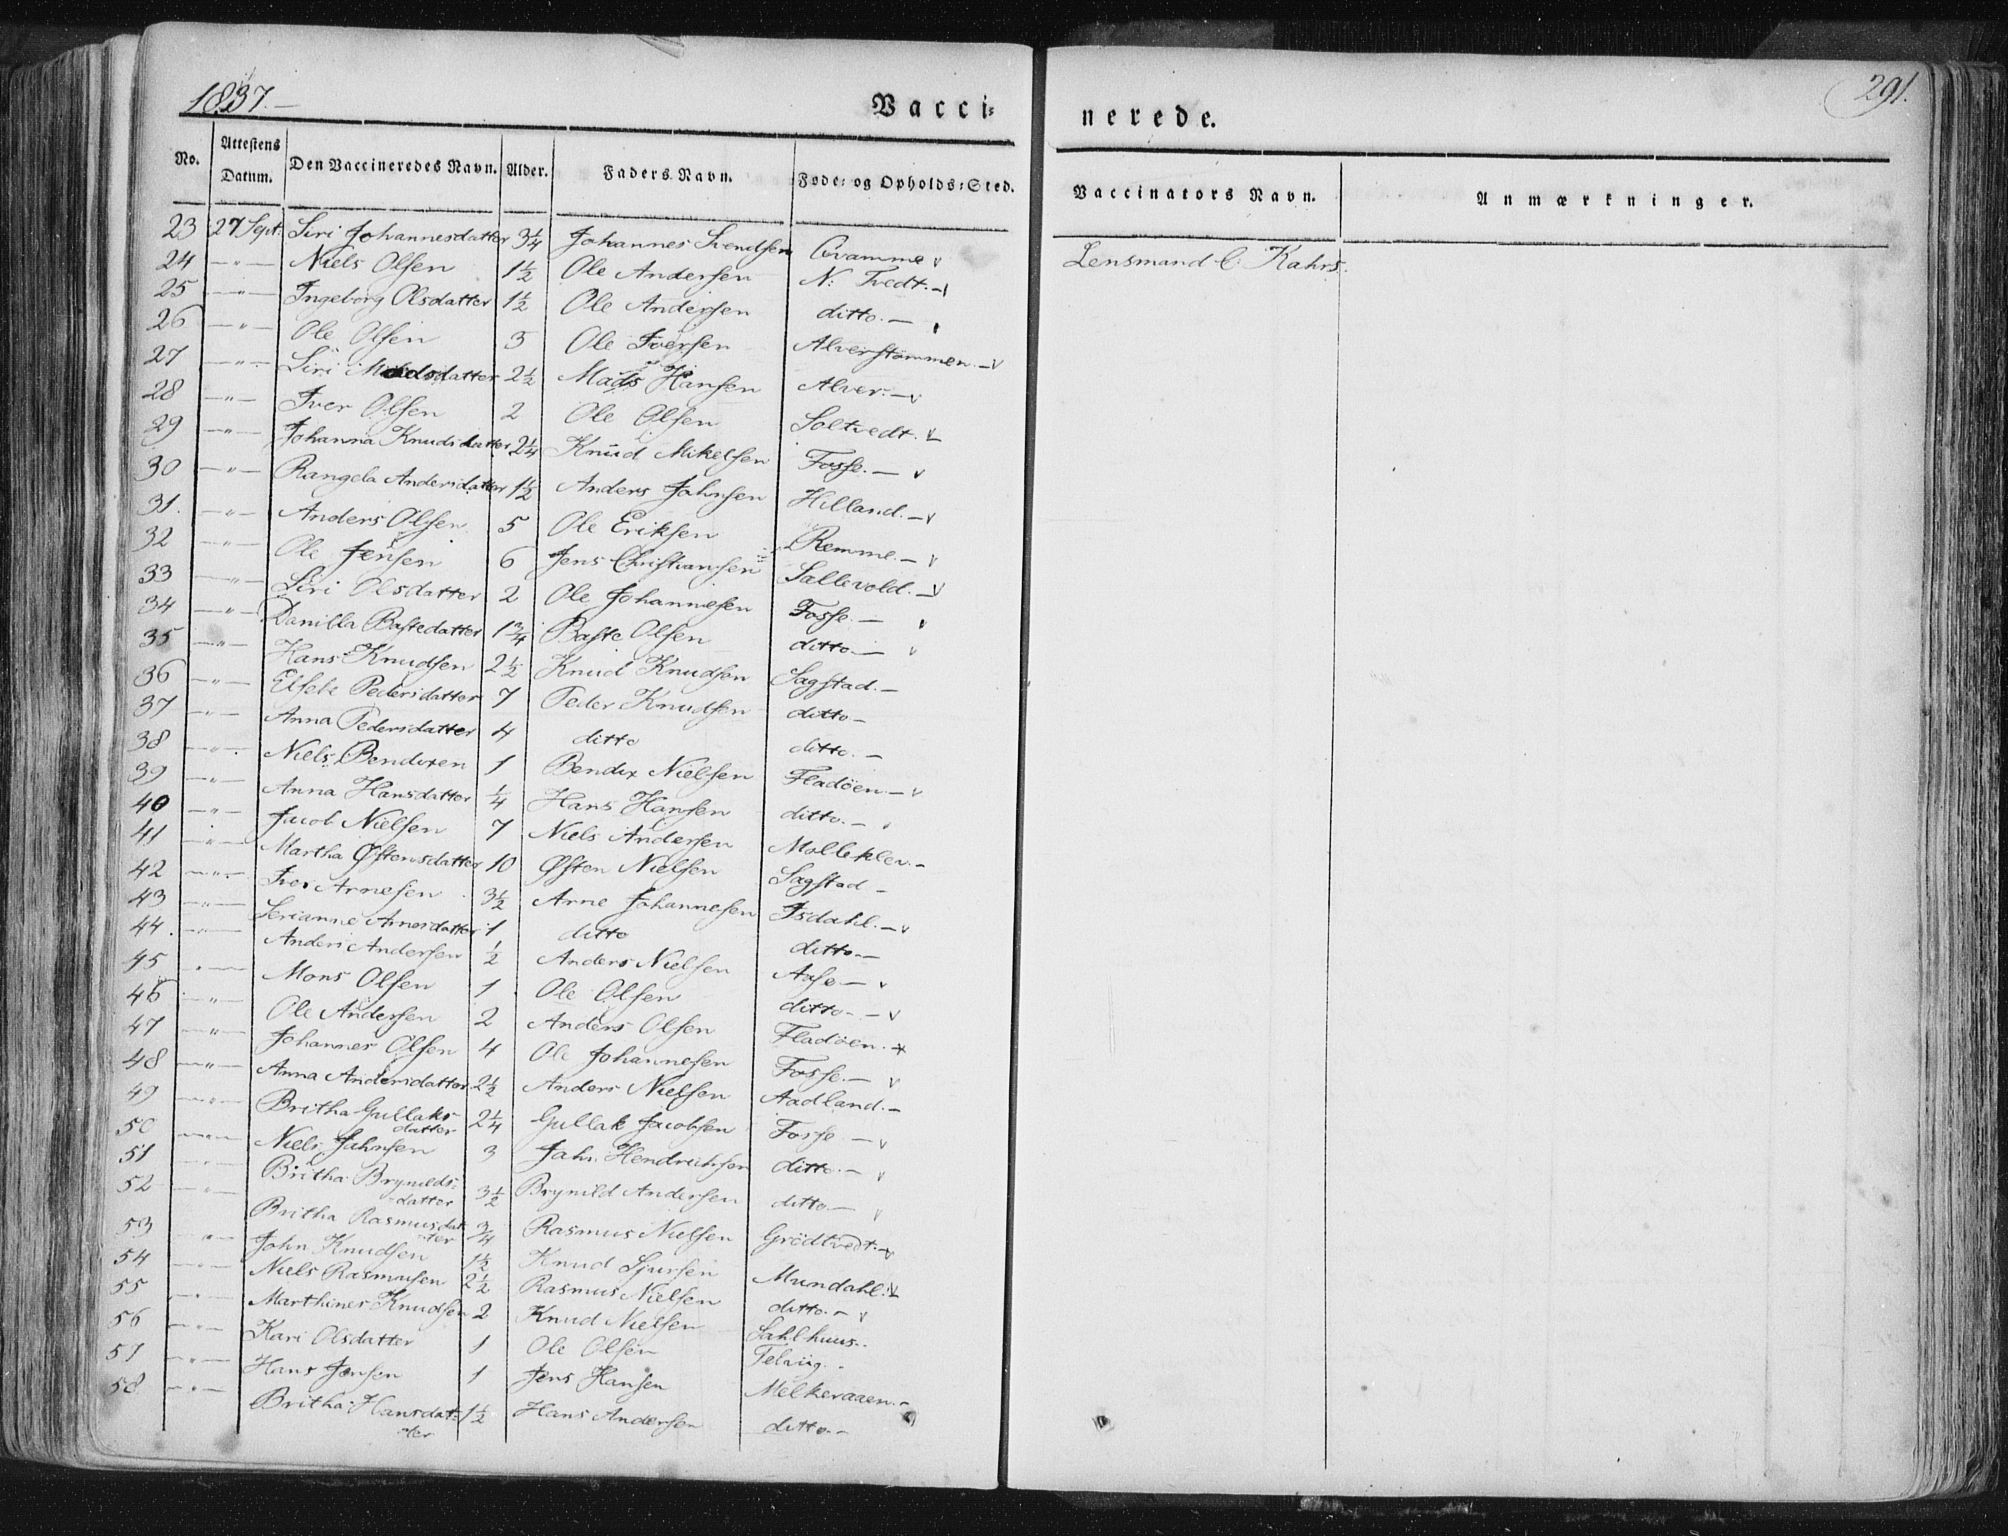 1837.—
Vacci-
nerede.
291.
No. Attestens Datum. Den Vaccineredes Navn. Alder. Faders Navn. Føde- og Opholds-Sted. Vaccinators Navn. Anmærkninger.
23 27 Sept. Siri Johannesdatter 3/4 Johannes Svendsen Qvamme Lensmand C. Kahrs.
24 —"— Niels Olsen 1 1/2 Ole Andersen N: Tvedt.—
25 —"— Ingeborg Olsdatter 1 1/2 Ole Andersen ditto.—
26 —"— Ole Olsen 3 Ole Iversen Alverstømmen.—
27 —"— Siri Madsdatter 2 1/2 Mads Hansen Alver.—
28 —"— Iver Olsen 2 Ole Olsen Soltvedt.
29 —"— Johanna Knudsdatter 2 1/4 Knud Mikelsen Fosse.—
30 —"— Rangela Andersdatter 1 1/2 Anders Jahnsen Hilland.—
31. —"— Anders Olsen 5 Ole Eriksen Remme.—
32 —"— Ole Jensen 6 Jens Christiansen Sallevold.—
33 —"— Siri Olsdatter 2 Ole Johannesen Fosse.—
34 —"— Danilla Bastedatter 1 3/4 Baste Olsen ditto.—
35 —"— Hans Knudsen 2 1/2 Knud Knudsen Sagstad.—
36 —"— Elsebe Pedersdatter 7 Peder Knudsen ditto—
37 —"— Anna Pedersdatter 4 ditto ditto.—
38 —"— Niels Bendixen 1 Bendix Nielsen Fladöen.—
39 —"— Anna Hansdatter 1/4 Hans Hansen ditto.—
40 —"— Jacob Nielsen 7 Niels Andersen Molleklev.—
41 —"— Martha Østensdatter 10 Østen Nielsen Sagstad—
42 —"— Iver Arnesen 3 1/2 Arne Johannesen Isdahl.—
43 —"— Serianne Arnesdatter 1 ditto ditto.—
44. —"— Anders Andersen 1/2 Anders Nielsen Aase—
45 —"— Mons Olsen 1 Ole Olsen ditto.—
46 —"— Ole Andersen 2 Anders Olsen Fladöen.
47 —"— Johannes Olsen 4 Ole Johannesen Fosse.—
48 —"— Anna Andersdatter 2 1/2 Anders Nielsen Aadland.—
49 —"— Britha Gullaks-
datter 2 1/4 Gullak Jacobsen Fosse—
50 —"— Niels Jahnsen 3 Jahn Hendrichsen ditto.—
51 —"— Britha Brynilds-
datter 3 1/2 Brynild Andersen ditto—
52 —"— Britha Rasmusdat-
ter 3/4 Rasmus Nielsen Grödtvedt.—
53 —"— John Knudsen 1 1/2 Knud Sjursen Mundahl.
54 —"— Niels Rasmusen 2 1/2 Rasmus Nielsen ditto.—
55 —"— Marthines Knudsen 2 Knud Nielsen Sahlhuus.
56 —"— Kari Olsdatter 1 Ole Olsen
57 —"— Hans Jensen 1 Jens Hansen Melkeraaen.—
58 —"— Britha Hansdat-
ter 1 1/2 Hans Andersen ditto.—